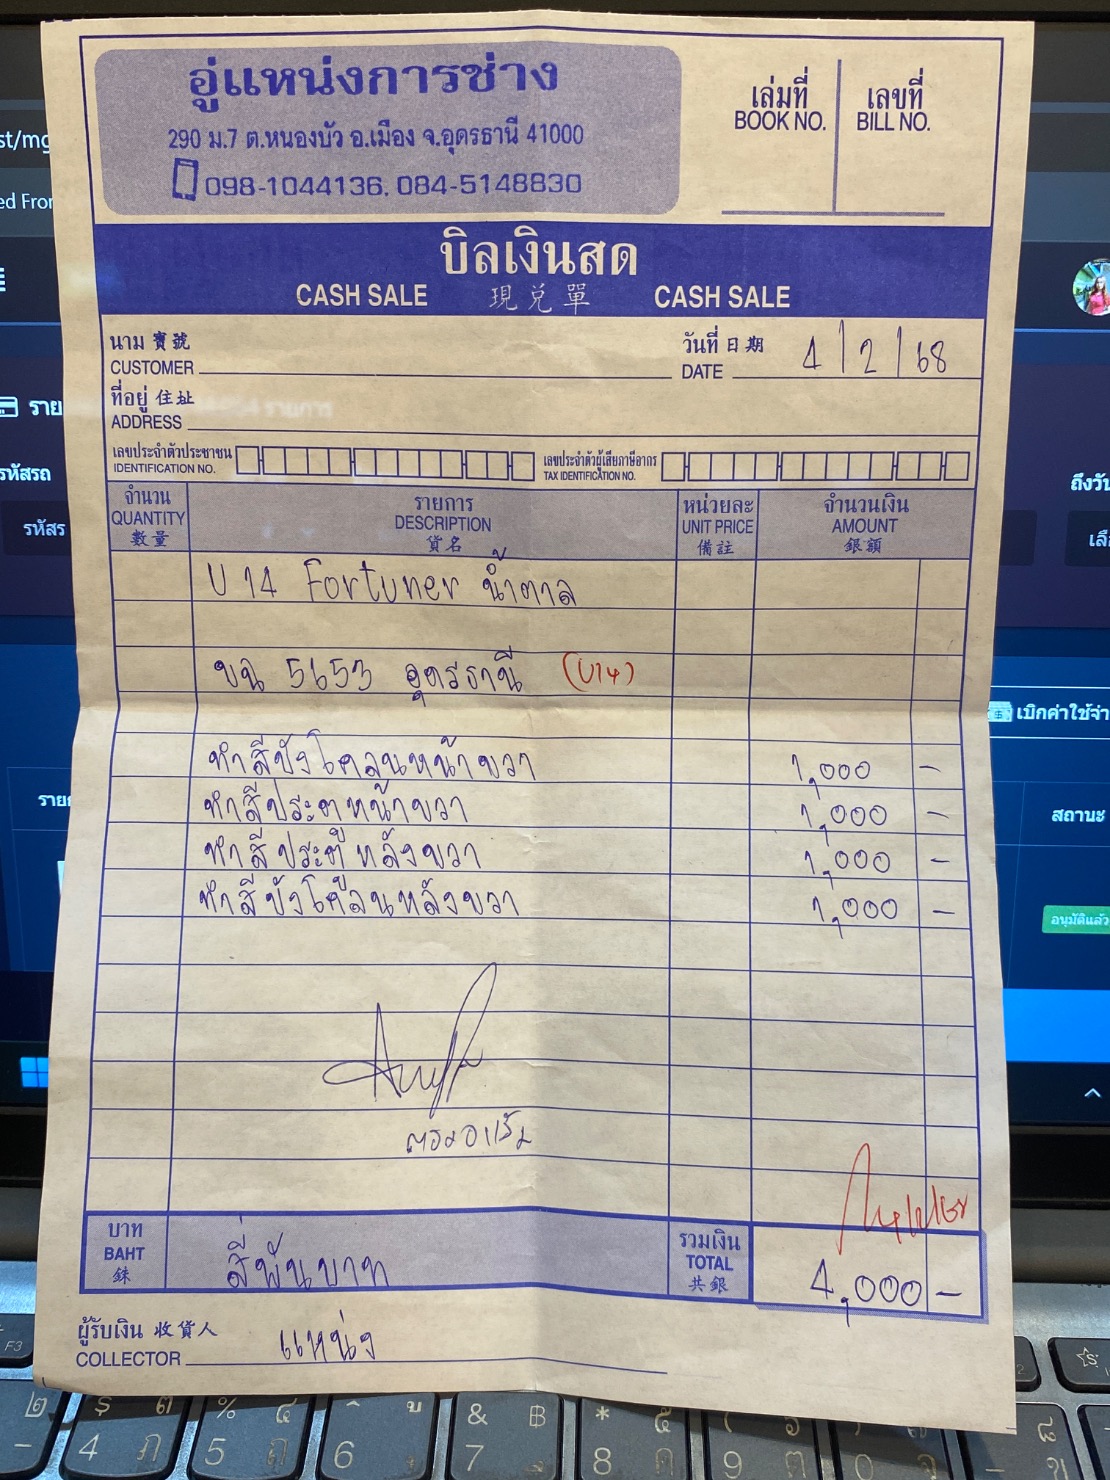 อู่แหน่งการช่าง
290 ม.7 ต.หนองบัว อ.เมือง จ.อุดรธานี 41000
098-1044136, 084-5148830
เล่มที่ เลขที่
BOOK NO. BILL NO.
บิลเงินสด
CASH SALE 現兌單 CASH SALE
นาม 寶號 วันที่ 日期 4/2/68
CUSTOMER DATE
ที่อยู่ 住址
ADDRESS
เลขประจำตัวประชาชน เลขประจำตัวผู้เสียภาษีอากร
IDENTIFICATION NO. TAX IDENTIFICATION NO.
จำนวน รายการ หน่วยละ จำนวนเงิน
QUANTITY DESCRIPTION UNIT PRICE AMOUNT
數量 貨名 備註 銀額
U 14 Fortuner น้ำตาล
ขฉ 5653 อุดรธานี (U14)
ทำสีบังโคลนหน้าขวา 1,000 -
ทำสีประตูหน้าขวา 1,000 -
ทำสีประตูหลังขวา 1,000 -
ทำสีบังโคลนหลังขวา 1,000 -
บาท รวมเงิน
BAHT สี่พันบาท TOTAL 4,000 -
銖 共銀
ผู้รับเงิน 收貨人
COLLECTOR แหน่ง
st/mg
ed From
ราย
รหัสรถ
รหัสร
ถึงวัน
เลื
เบิกค่าใช้จ่า
สถานะ
อนุมัติแล้ว
F3
$ ๓ % ๔ ^ & ฿ * ๕
4 ภ 5 ถ 6 7 8 ค 9 ต